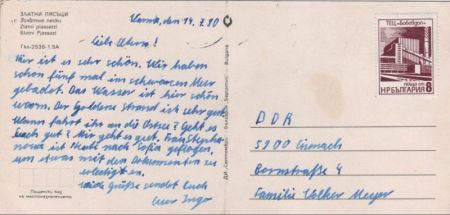 ЗЛАТНИ ПЯСЪЦИ
Золотые пески
Zlatni piassatzi
Slatni Pjassazi
Гкл-2535-1.SA
Varna, den 14.7.80
Liebe Eltern!
Hier ist es sehr schön. Wir haben
schon fünf mal im schwarzen Meer
gebadet. Das Wasser ist hier schön
warm. Der Goldene Strand ist sehr gut.
Wann fahrt ihr an die Ostsee? Geht es
Euch gut? Mir geht es gut. Frau
ist heute nach Sofia geflogen,
um etwas mit den Dokumenten zu
erledigen.
Viele Grüße sendet Euch
Euer Ingo
Пощенски код
на местоназначението
ДИ „Септември“ Bulgaria
ТЕЦ „Бобовдол“
НР БЪЛГАРИЯ 8
DDR
5900 Eisenach
Bornstraße 4
Familie Volker Meyer